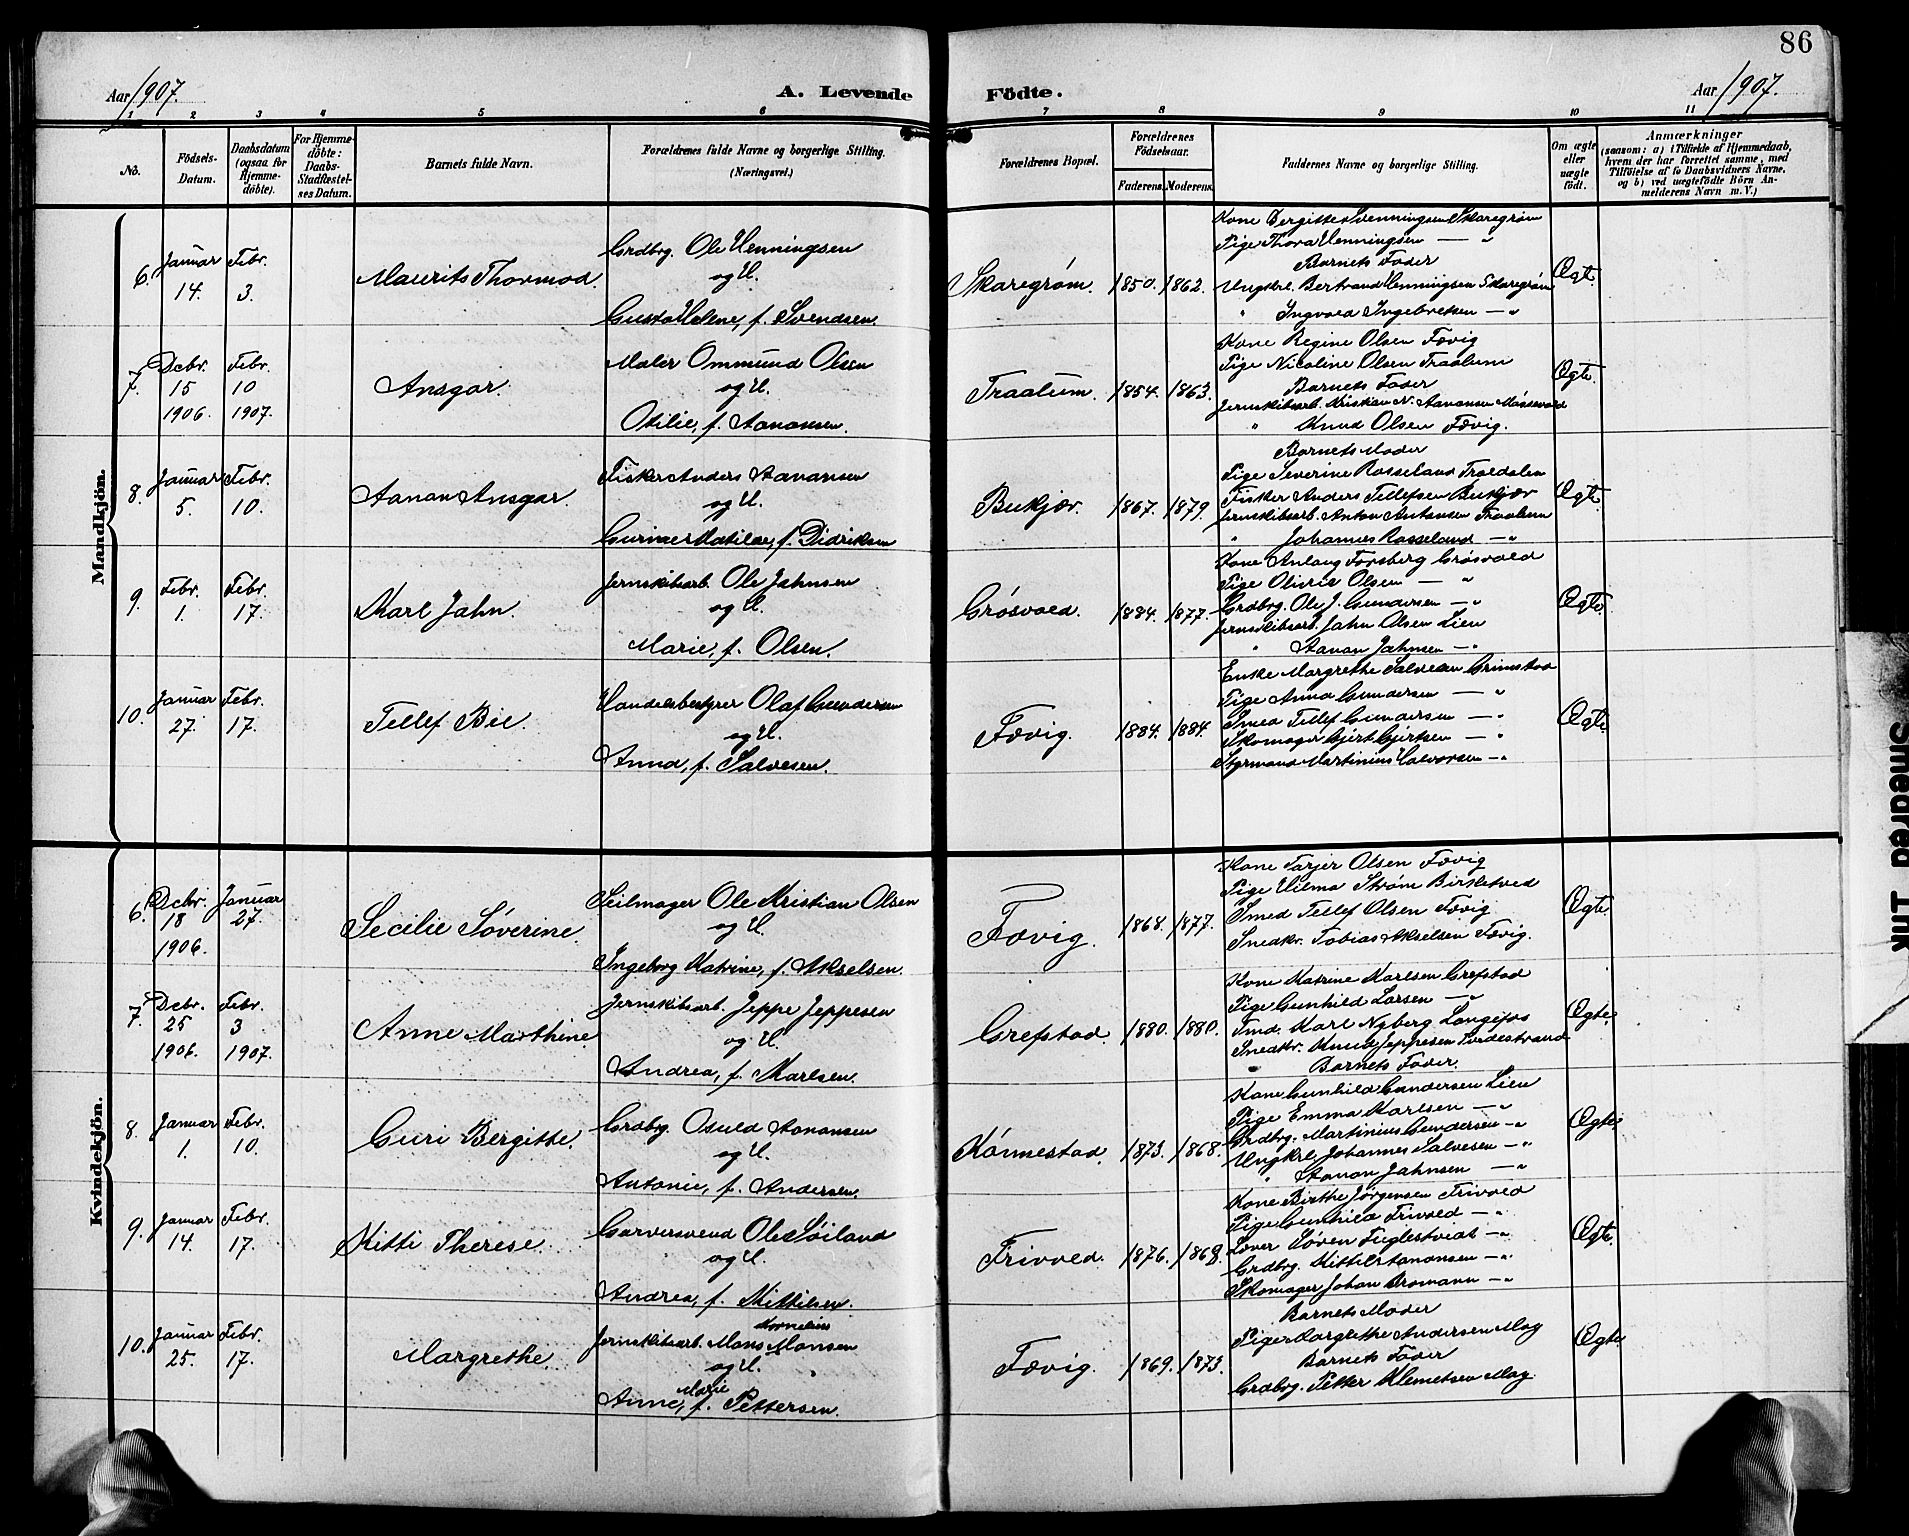 86
Aar 1907.
A. Levende
Födte.
Aar 1907.
1 2 3 4 5 6
7 8 9 10 11
No.
Födsels-
Datum.
Daabsdatum
(ogsaa for
Hjemme-
döbte).
For Hjemme-
döbte:
Daabs-
Stadfæstel-
ses Datum.
Barnets fulde Navn.
Forældrenes fulde Navne og borgerlige Stilling.
(Næringsvei.)
Forældrenes Bopæl.
Forældrenes
Födselsaar.
Faderens. Moderens.
Faddernes Navne og borgerlige Stilling.
Om ægte
eller
uægte
født.
Anmærkninger
(saasom: a) i Tilfælde af Hjemmedaab,
hvem der har forrettet samme, med
Tilföielse af to Daabsvidners Navne,
og b) ved uægtefödte Börn An-
melderens Navn m. V.)
Mandkjön.
6. Januar 14. Febr. 3.
Maurits Thormod.
Grdbrg. Ole Henningsen
og H.
Gusta Helene, f. Svendsen.
Skaregrøm. 1850. 1862.
Kone Bergitte Svenningsen Skaregrøm
Pige Thora Henningsen — "
Barnets Fader
Ungkrl. Bertrand Henningsen Skaregrøm
" Ingvald Ingebretsen — "
Ægte.
7. Dcbr. 15 1906. Febr. 10 1907.
Ansgar.
Maler Ommund Olsen
og H.
Otilie, f. Aanonsen.
Traalum. 1854. 1863.
Kone Regine Olsen Fævig
Pige Nicoline Olsen Traalum
Barnets Fader
Jernskibsarb. Kristian N. Aanonsen
" Knud Olsen Fævig.
Ægte.
8. Januar 5. Febr. 10.
Aanon Ansgar.
Fisker Anders Aanansen
og H.
Gurine Matilde, f. Didriksen
Bukjær. 1867. 1879.
Barnets Moder
Pige Severine Rosseland Trældalen
Fisker Anders Tellefsen Bukjær
Jernskibsarb. Anton Antonsen Traalum
" Johannes Rosseland — "
Ægte.
9. Febr. 1. Febr. 17.
Karl Jahn.
Jernskibsarb. Ole Jahnsen
og H.
Marie, f. Olsen.
Grøsvold. 1884. 1877.
Kone Anlaug Forsberg Grøsvold
Pige Olivie Olsen — "
Grdbrg. Ole J. Gundersen — "
Jernskibsarb. Jahn Olsen Lien
" Aanon Jahnsen — "
Ægte.
10. Januar 27. Febr. 17.
Tellef Bie.
Handelsbestyrer Olaf Gundersen
og H.
Anna, f. Salvesen.
Fævig. 1884. 1884.
Enke Margrethe Salvesen Grimstad
Pige Anna Gundersen — "
Smed Tellef Gundersen — "
Skomager Gjert Gjertsen — "
Styrmand Martinius Halvorsen — "
Ægte.
Kvindekjön.
6. Dcbr. 18 1906. Januar 27.
Secilie Søverine.
Seilmager Ole Kristian Olsen
og H.
Ingeborg Katrine, f. Akselsen.
Fævig. 1868. 1877.
Kone Tarjer Olsen Fævig
Pige Hilma Strøm Birketved
Smed Tellef Olsen Fævig
Snedkr. Tobias Akselsen Fævig.
Ægte.
7. Dcbr. 25 1906. Febr. 3 1907.
Anne Marthine
Jernskibsarb. Jeppe Jeppesen
og H.
Andrea, f. Karlsen.
Grefstad 1880. 1880.
Kone Katrine Karlsen Grefstad
Pige Gunhild Larsen — "
Tmd. Karl Nyberg Langefos
Snedkr. Knud Jeppesen Tvedestrand
" Barnets Fader.
Ægte.
8. Januar 1. Febr. 10.
Guri Bergitte.
Grdbrg. Osuld Aanonsen
og H.
Antonie, f. Andersen.
Kónnestad. 1873. 1868.
Kone Gunhild Gundersen Lien
Pige Emma Karlsen — "
Grdbrg. Martinius Gundersen — "
Ungkrl. Johannes Salvesen — "
" Aanon Jahnsen — "
Ægte.
9. Januar 14. Febr. 17.
Kitti Therese.
Garversvend Ole Søiland
og H.
Andrea, f. Kittilsen.
Frivold. 1876. 1868.
Kone Birthe Jørgensen Frivold
Pige Gunhild Frivold — "
Søren Fuglestvedt — "
Grdbrg. Kittil Aanonsen — "
Skomager Johan Bromann — "
Ægte.
10. Januar 25. Febr. 17.
Margrethe.
Kornelius
Jernskibsarb. Mons Monsen
og H.
Marie
Anne, f. Pettersen.
Fævig. 1869. 1873.
Barnets Moder
Pige Margrethe Andersen Moy
Barnets Fader
Grdbrg. Petter Klemetsen Moy.
Ægte.
Smeared Ink